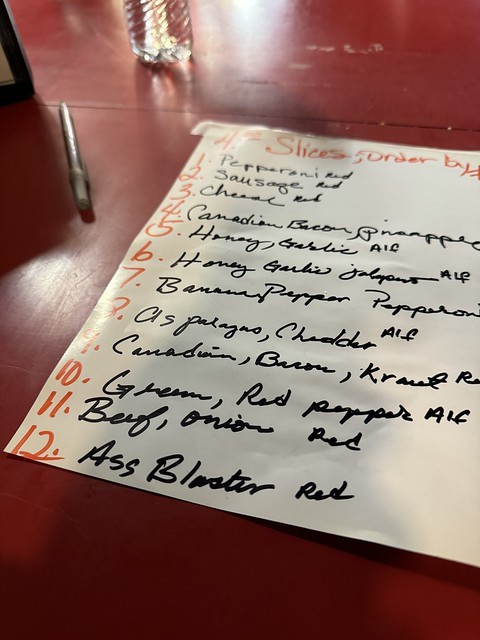 4.00 Slices, Order by #
1. Pepperoni Red
2. Sausage Red
3. Cheese Red
4. Canadian Bacon, pineapple
5. Honey, Garlic Alf
6. Honey Garlic jalapeno Alf
7. Banana Pepper Pepperoni
8. Asparagus, Cheddar Alf
9. Canadian, Bacon, Kraut Re
10. Green, Red pepper Alf
11. Beef, onion Red
12. Ass Blaster Red